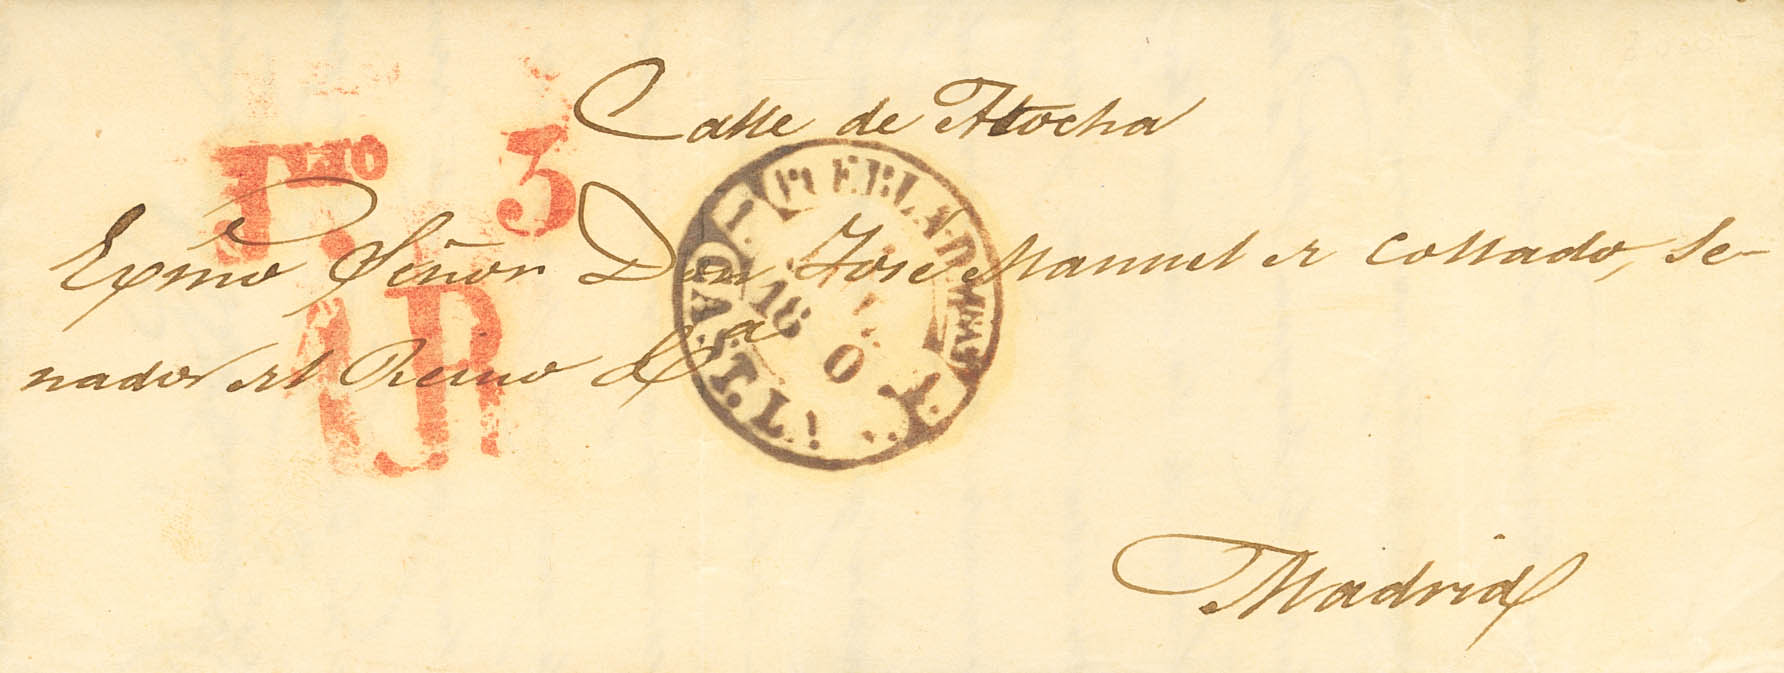 Calle de Atocha
Exmo Señor Don José Manuel de Collado, Se-
nador del Reino &a
Madrid
Fco 3
1R
PUEBLA-D-
18
0
CAST